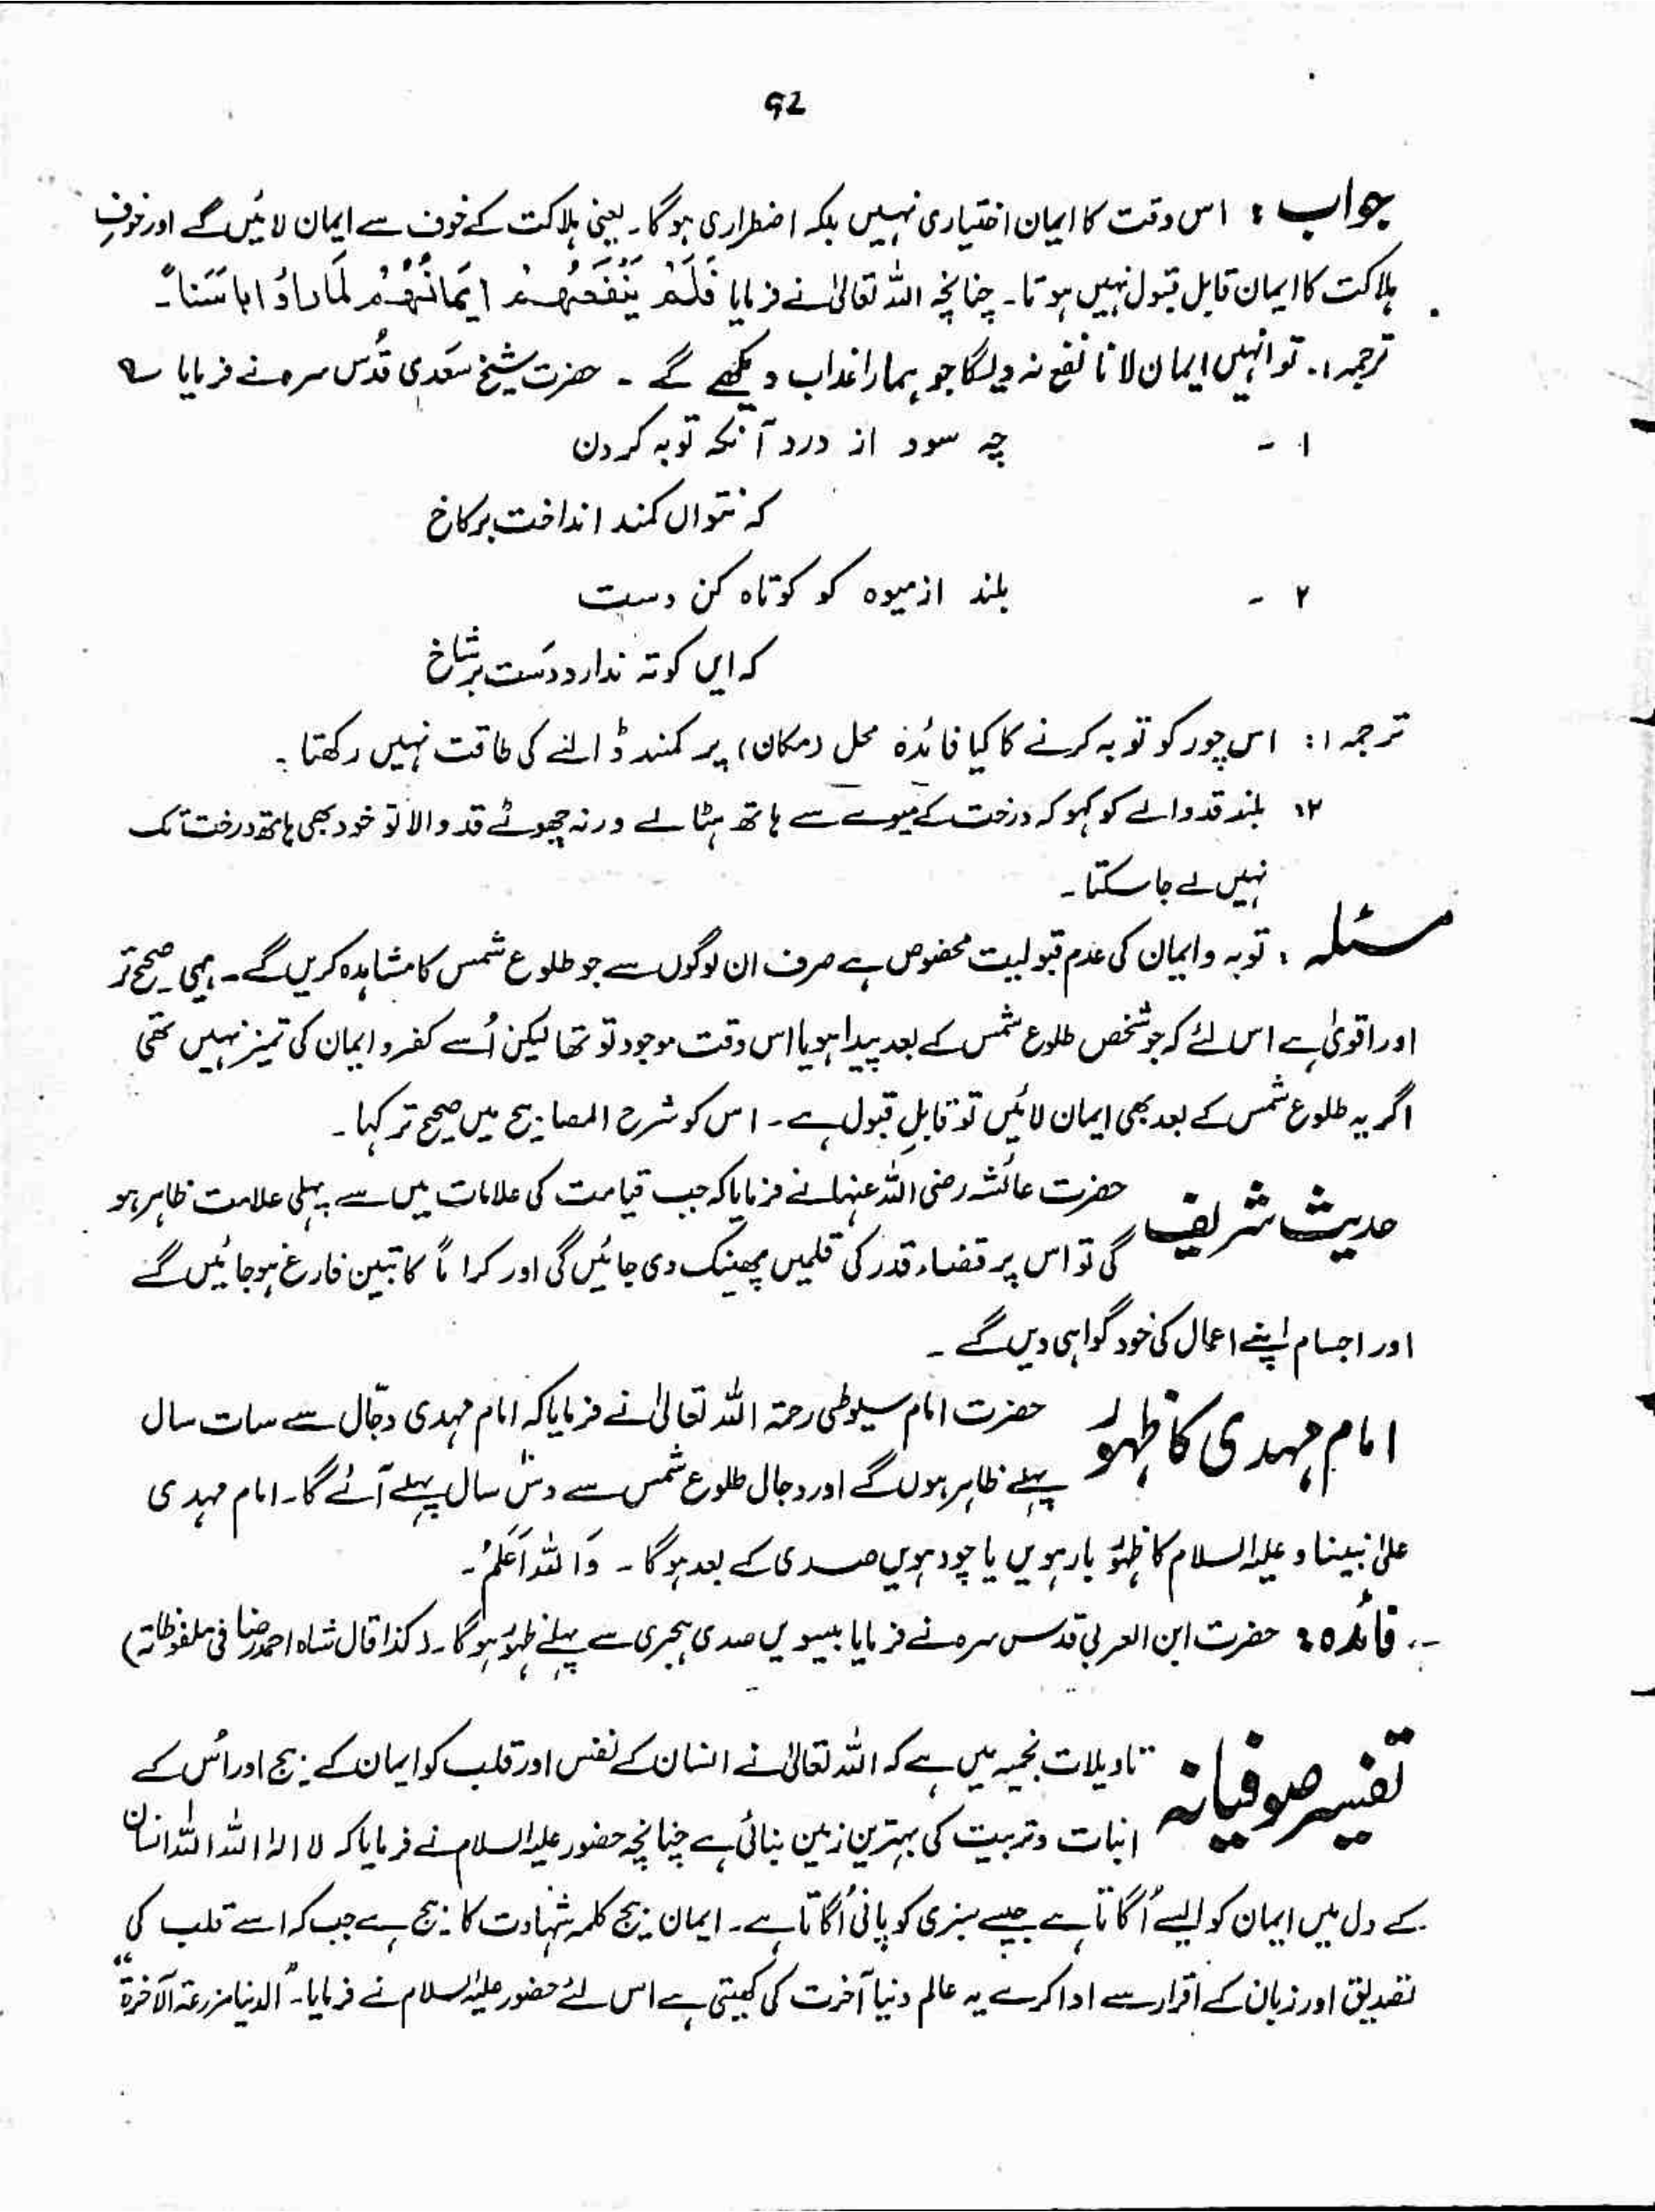 92
جواب : اس وقت کا ایمان اختیاری نہیں بلکہ اضطراری ہوگا۔ یعنی ہلاکت کے خوف سے ایمان لائیں گے اور خوفِ
ہلاکت کا ایمان قابل قبول نہیں ہوتا۔ چنانچہ اللہ تعالیٰ نے فرمایا فَلَمْ يَنْفَعُهُمْ اِيمَانُهُمْ لَمَّا رَاَوُا بَاسَنَا۔
ترجمہ :۔ تو انہیں ایمان لانا نفع نہ دیگا جو ہمارا عذاب دیکھے گے ۔ حضرت شیخ سعدی قُدس سرہ نے فرمایا ؎
۱ ۔ چہ سود از درد آنکہ توبہ کردن
کہ نتواں کمند انداخت بر کاخ
۲ ۔ بلند از میوہ کو کوتاہ کن دست
کہ ایں کوتہ ندارد دست بر شاخ
ترجمہ ۱: اس چور کو توبہ کرنے کا کیا فائدہ محل (مکان) پر کمند ڈالنے کی طاقت نہیں رکھتا ۔
۲: بلند قد والے کو کہو کہ درخت کے میوے سے ہاتھ ہٹا لے ورنہ چھوٹے قد والا تو خود بھی ہاتھ درخت تک
نہیں لے جا سکتا ۔
مسئلہ : توبہ و ایمان کی عدم قبولیت مخصوص ہے صرف ان لوگوں سے جو طلوع شمس کا مشاہدہ کریں گے۔ یہی صحیح تر
اور اقویٰ ہے اس لئے کہ جو شخص طلوع شمس کے بعد پیدا ہو یا اس وقت موجود تو تھا لیکن اُسے کفر و ایمان کی تمیز نہیں تھی
اگر یہ طلوع شمس کے بعد بھی ایمان لائیں تو قابلِ قبول ہے ۔ اس کو شرح المصابیح میں صحیح تر کہا ۔
حدیث شریف حضرت عائشہ رضی اللہ عنہا نے فرمایا کہ جب قیامت کی علامات میں سے پہلی علامت ظاہر ہو
گی تو اس پر قضاء قدر کی قلمیں پھینک دی جائیں گی اور کراماً کاتبین فارغ ہو جائیں گے
اور اجسام اپنے اعمال کی خود گواہی دیں گے ۔
امام مہدی کا ظہور حضرت امام سیوطی رحمۃ اللہ تعالیٰ نے فرمایا کہ امام مہدی دجّال سے سات سال
پہلے ظاہر ہوں گے اور دجال طلوع شمس سے دس سال پہلے آئے گا۔ امام مہدی
علیٰ نبینا و علیہ السلام کا ظہور بارہویں یا چودہویں صدی کے بعد ہوگا ۔ وَاللّٰہُ اَعْلَمُ ۔
فائدہ : حضرت ابن العربی قدس سرہ نے فرمایا بیسویں صدی ہجری سے پہلے ظہور ہوگا۔ (کذا قال شاہ احمد رضا فی ملفوظاتہ)
تفسیر صوفیانہ تاویلات نجمیہ میں ہے کہ اللہ تعالیٰ نے انسان کے نفس اور قلب کو ایمان کے بیج اور اُس کے
انبات و تربیت کی بہترین زمین بنائی ہے چنانچہ حضور علیہ السلام نے فرمایا کہ لا الہ الا اللہ انسان
کے دل میں ایمان کو ایسے اُگاتا ہے جیسے سبزی کو پانی اُگاتا ہے ۔ ایمان بیج کلمہ شہادت کا بیج ہے جب کہ اسے قلب کی
تصدیق اور زبان کے اقرار سے ادا کرے یہ عالم دنیا آخرت کی کھیتی ہے اس لئے حضور علیہ السلام نے فرمایا۔ "الدنیا مزرعۃ الآخرۃ"